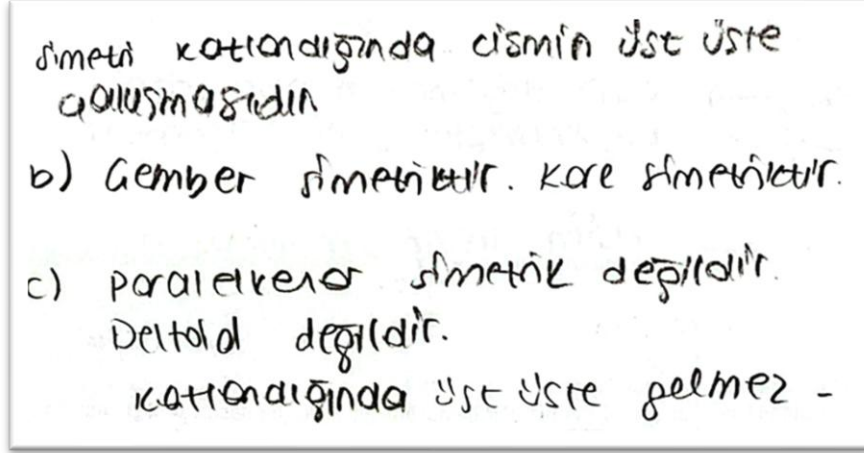 simetri katlandığında cismin üst üste
çalışmasıdır
b) Çember simetriktir. Kare simetriktir.
c) paralelkenar simetrik değildir.
Deltoid değildir.
katlandığında üst üste gelmez -